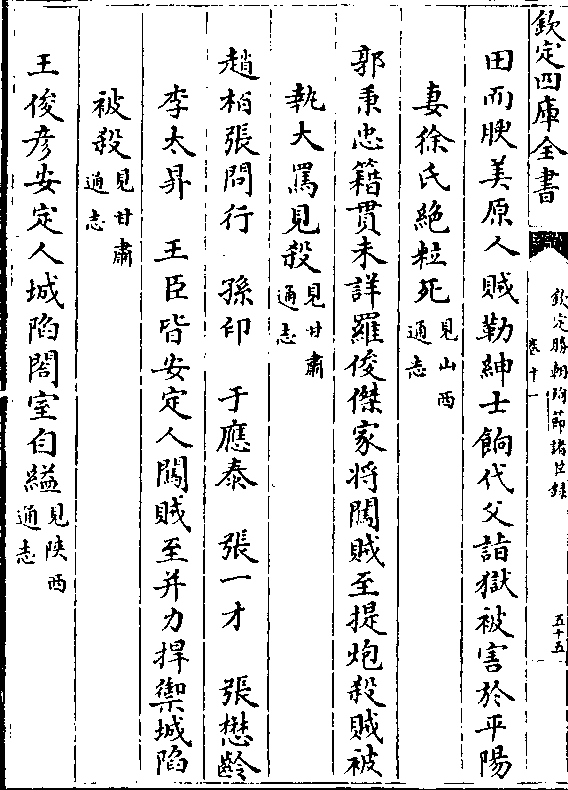 欽定四庫全書
欽定勝朝殉節諸臣錄
卷十一
五十五
田而腴美原人賊勒紳士餉代父詣獄被害於平陽
妻徐氏絶粒死見山西通志
郭秉忠籍貫未詳羅俊傑家将闖賊至提炮殺賊被
執大罵見殺見甘肅通志
趙柏張問行　孫印　于應泰　張一才　張懋齡
李太昇　王臣皆安定人闖賊至并力捍禦城陷
被殺見甘肅通志
王俊彦安定人城陷闔室自縊見陜西通志